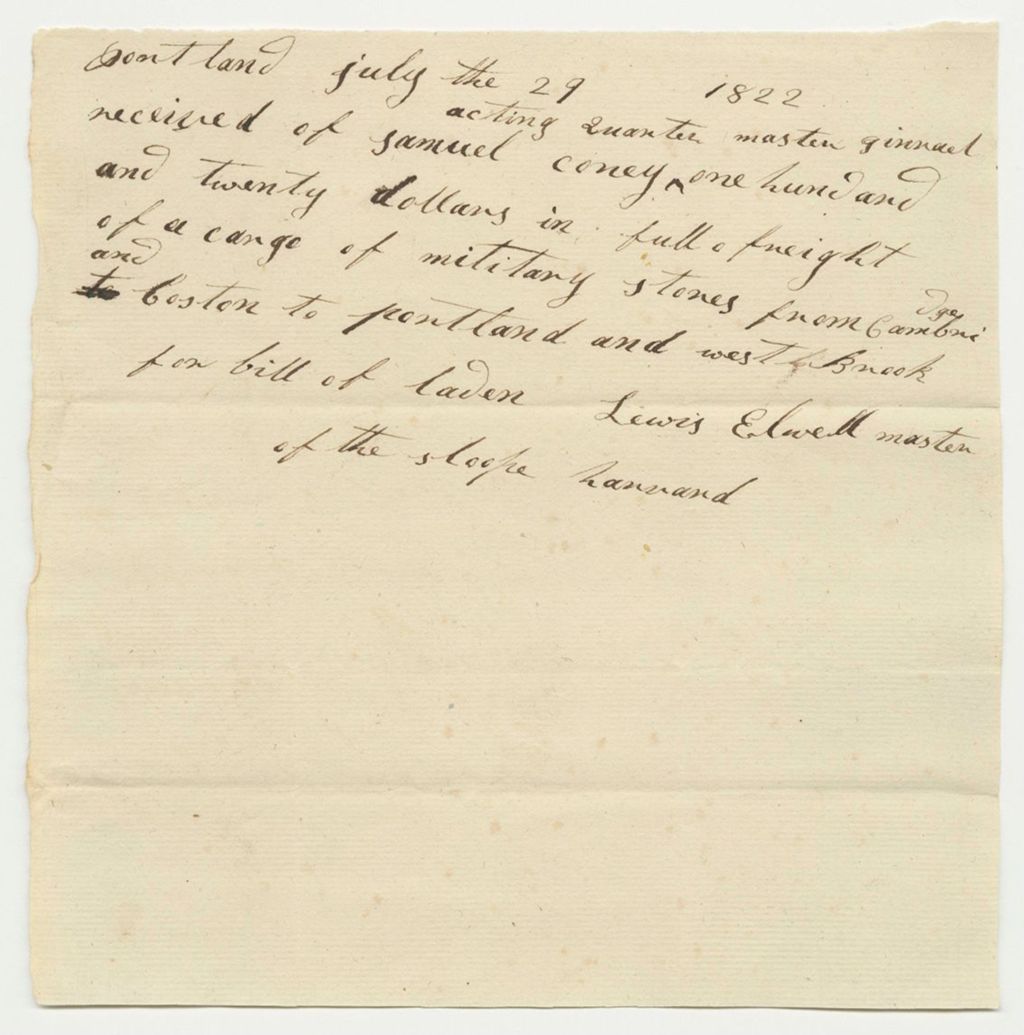 portland july the 29 1822
acting quarter master ginnael
received of samuel coney ^ one hundard
and twenty dollars in full o freight
of a cargo of military stores from Cambridge
and
to boston to portland and west Brook
for bill of laden Lewis Elwell master
of the sloope harvard